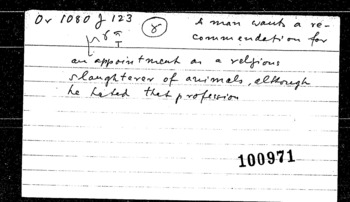 Or 1080 J 123
γ
A man wants a re-
commendation for
an appointment as a religious
slaughterer of animals, although
he hated that profession
100971